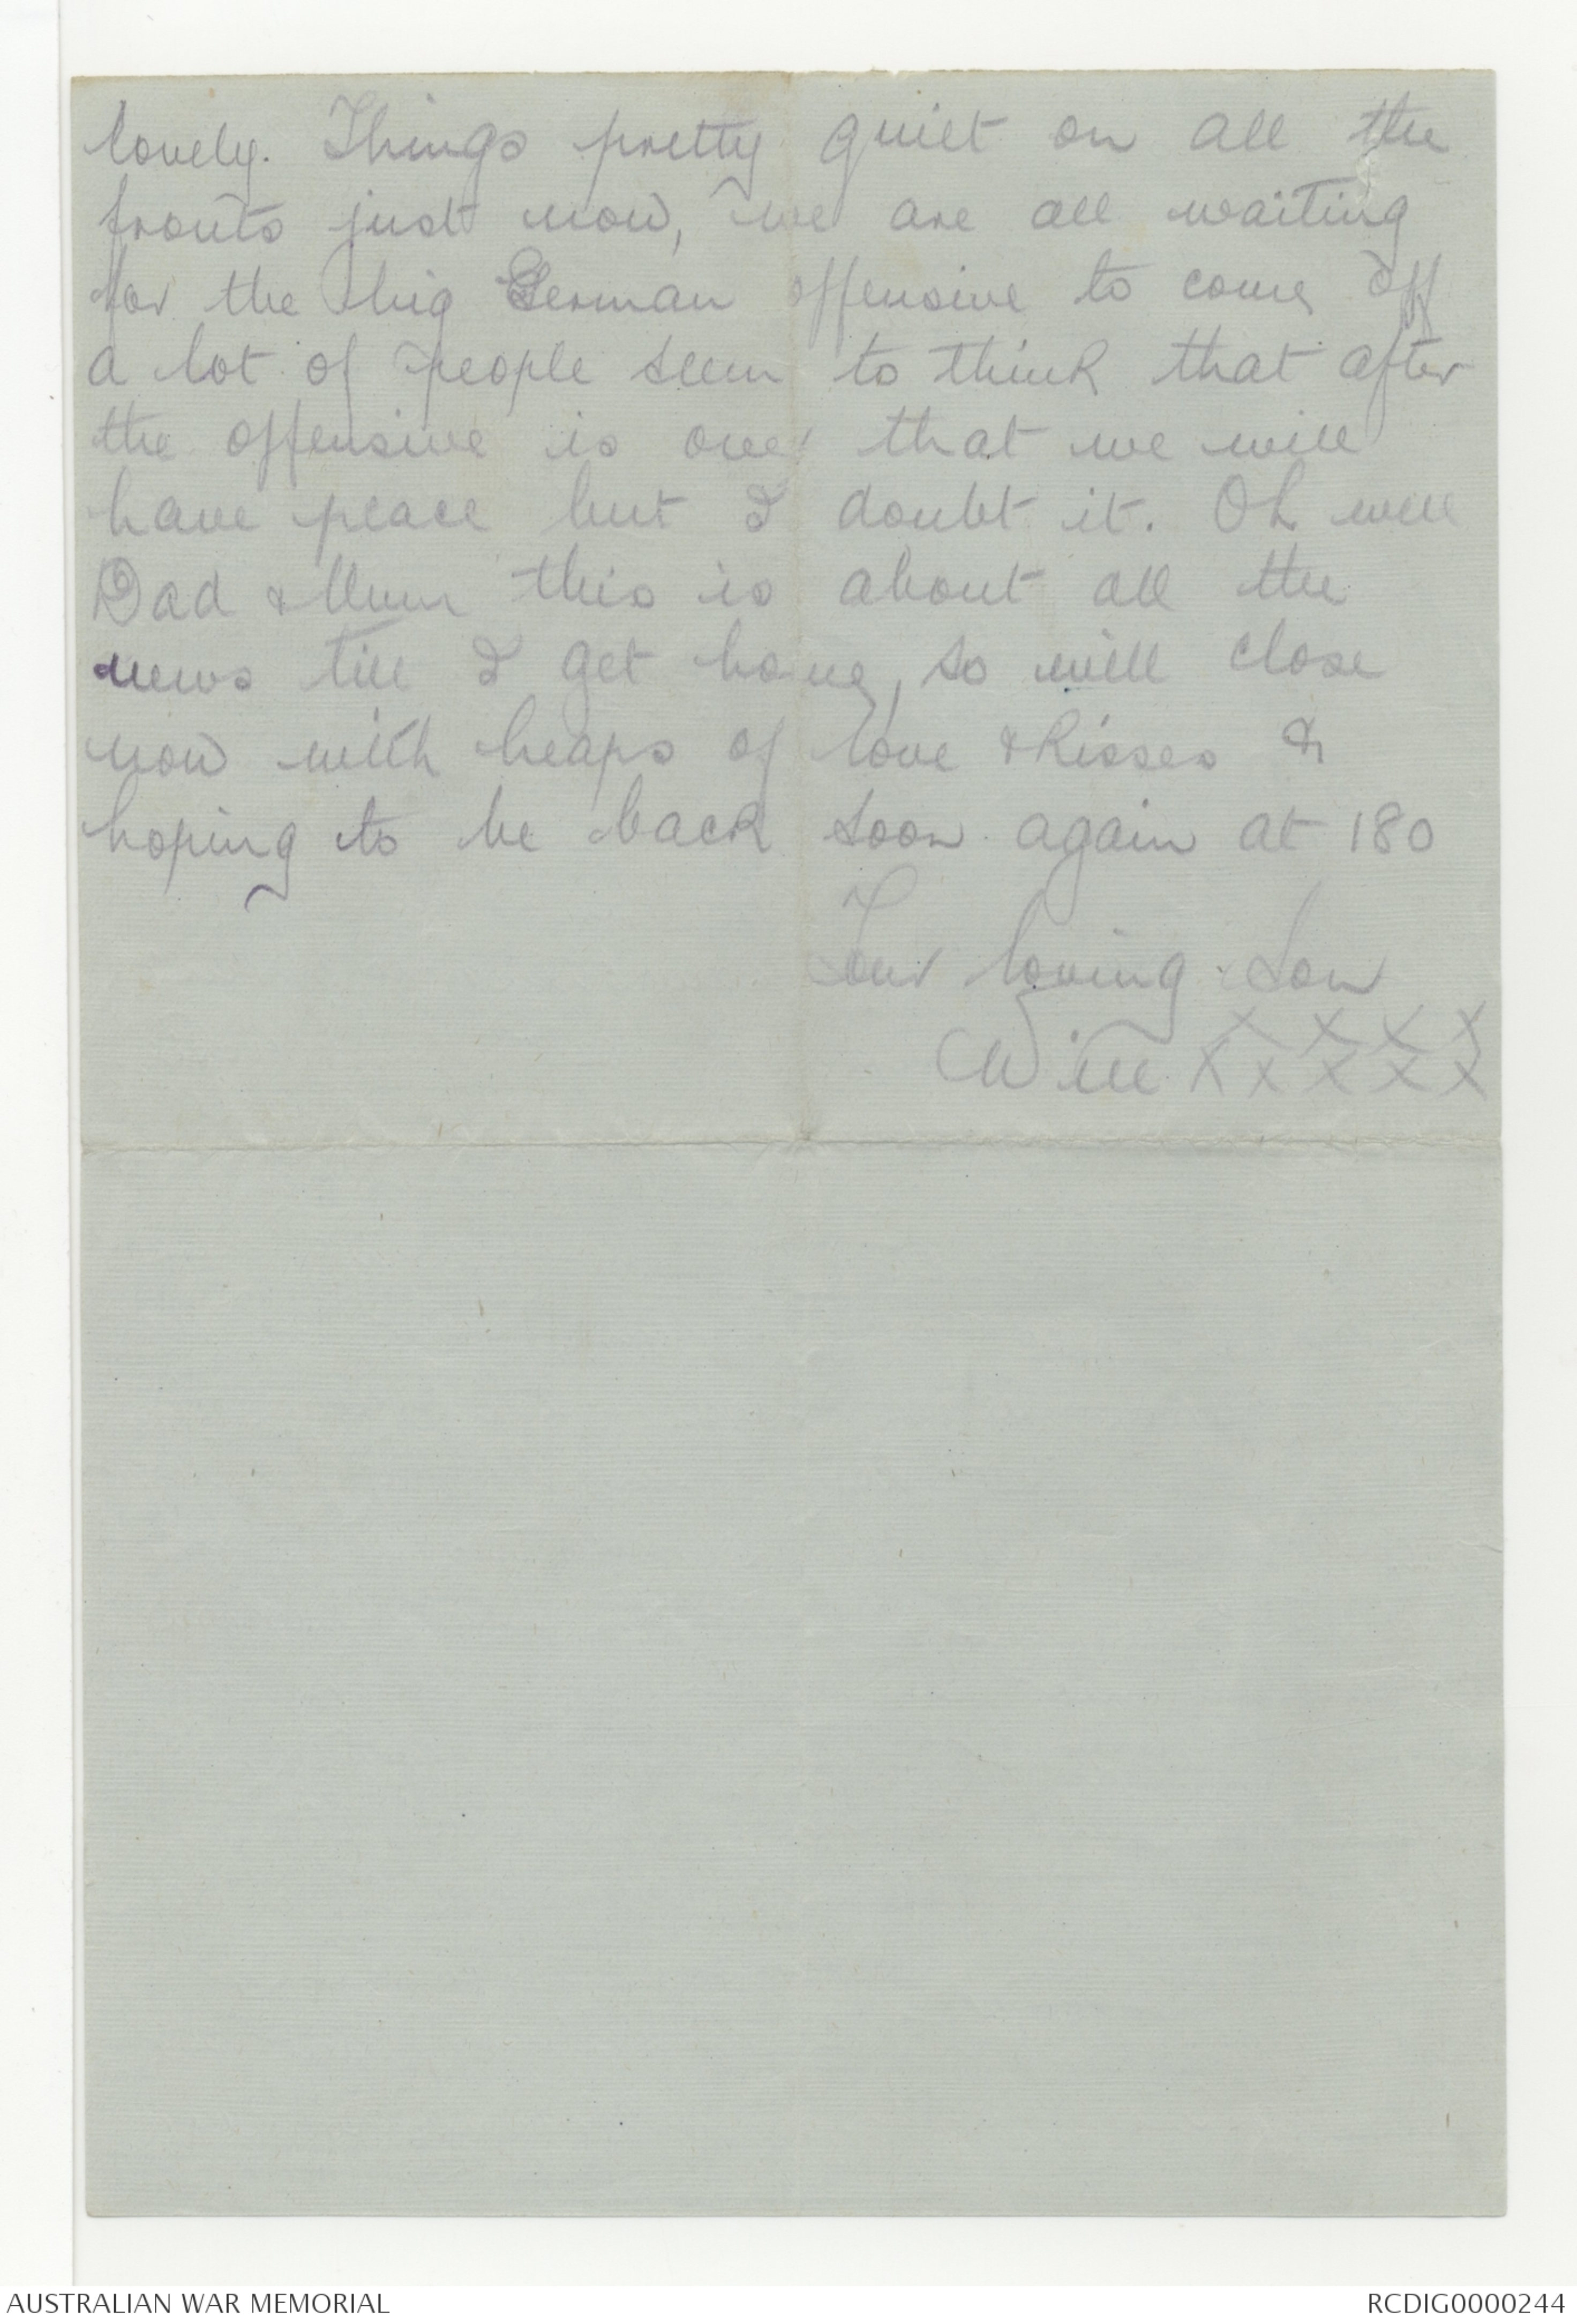 lovely. Things pretty quiet on all the
fronts just now, we are all waiting
for the big German offensive to come off
a lot of people seem to think that after
the offensive is over that we will
have peace but I doubt it. Oh well
Dad & Mum this is about all the
news till I get home, so will close
now with heaps of love & kisses &
hoping to be back soon again at 180
Your loving Son
x x x x
Will x x x x x
AUSTRALIAN WAR MEMORIAL
RCDIG0000244